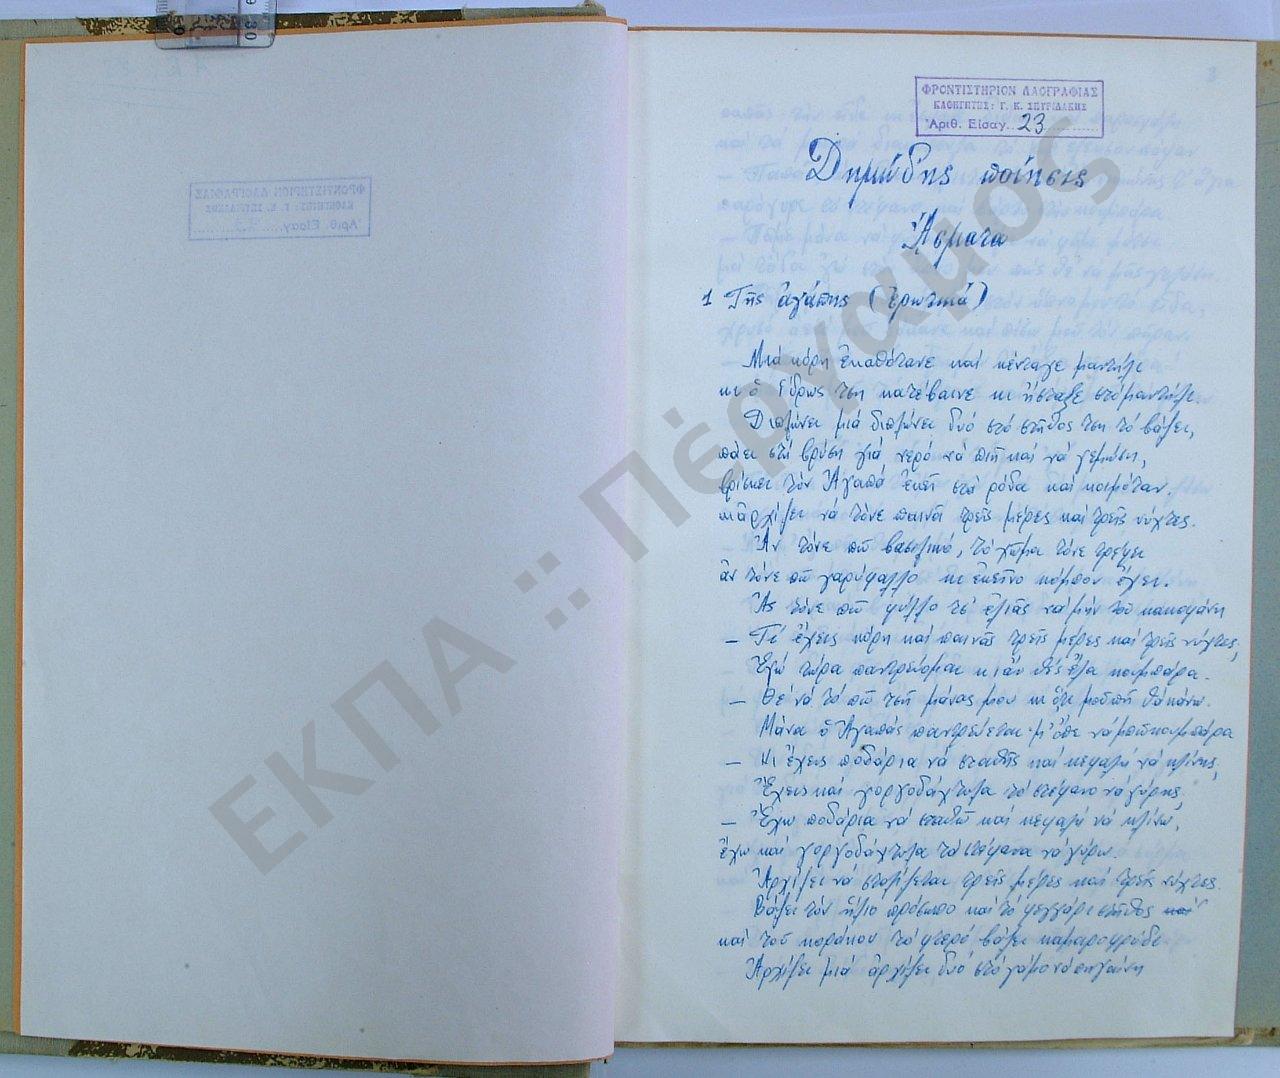 ΦΡΟΝΤΙΣΤΗΡΙΟΝ ΛΑΟΓΡΑΦΙΑΣ
ΚΑΘΗΓΗΤΗΣ: Γ. Κ. ΣΠΥΡΙΔΑΚΗΣ
Ἀριθ. Εἰσαγ. 23
Δημώδης ποίησις
Ἄσματα
1 Τῆς ἀγάπης (ἐρωτικά)
Μιά κόρη ἐκαθότανε καί κένταγε μαντήλι
κι ὁ ἵδρως τση κατέβαινε κι ἤσταζε στό μαντήλι.
Διπλώνει μιά διπλώνει δυό στό στῆθος τση τό βάζει,
πάει στή βρύση γιά νερό νά πιῆ καί νά γεμίση,
βρίσκει τόν Ἀγαπό ἐκεῖ στά ρόδα καί κοιμόταν.
κι ἀρχίζει νά τόνε παινᾶ τρεῖς μέρες καί τρεῖς νύχτες.
Ἄν τόνε πῶ βασιλικό, τό χῶμα τόνε τρέφει
ἄν τόνε πῶ γαρύφαλλο κι ἐκεῖνο κόμπον ἔχει.
Ἄς τόνε πῶ φύλλο τσ' ἐλιᾶς νά μήν του κακοφάνη
– Τί ἔχεις κόρη καί παινᾶς τρεῖς μέρες καί τρεῖς νύχτες,
Ἐγώ τώρα παντρεύομαι κι ἄν θές ἔλα κουμπάρα.
– Θέ νά τό πῶ τσῆ μάνας μου κι ὅτι μοῦ πῆ θά κάνω.
Μάνα ὁ Ἀγαπός παντρεύεται μ' εἶπε νά μπῶ κουμπάρα
– Κι ἔχεις ποδάρια νά σταθῆς καί κεφαλή νά κλίνης,
Ἔχεις καί γοργοδάχτυλα τό στέφανο νά γύρης,
– Ἔχω ποδάρια νά σταθῶ καί κεφαλή νά κλίνω,
ἔχω καί γοργοδάχτυλα τά στέφανα νά γύρω.
Ἀρχίζει νά στολίζεται τρεῖς μέρες καί τρεῖς νύχτες.
Βάζει τόν ἥλιο πρόσωπο καί τό φεγγάρι στῆθος καί
καί τοῦ κοράκου τό φτερό βάζει καμαροφρύδι
Ἀρχίζει μιά ἀρχίζει δυό στό γάμο νά πηγαίνη
ΕΚΠΑ :: Πέργαμος